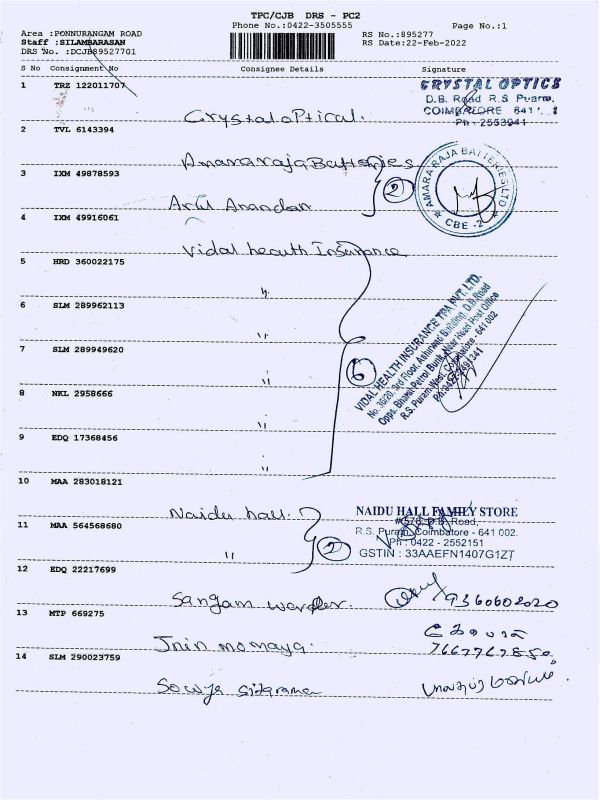 TPC/CJB DRS - PC2
Phone No.:0422-3505555 Page No.:1
Area :PONNURANGAM ROAD RS No.:895277
Staff :SILAMBARASAN RS Date:22-Feb-2022
DRS No. :DCJB89527701
S No Consignment No Consignee Details Signature
1 TRZ 122011707
CRYSTAL OPTICS
D.B. Road R.S Puram,
COIMBATORE 641
Ph : 2553941
Crystal optical.
2 TVL 6143394
Amararaja Batteries
AMARA RAJA BATTERIES LTD
CBE - 2
3 IXM 49878593
2
Arul Anandan
4 IXM 49916061
Vidal health Insurance
5 HRD 360022175
"
6 SLM 289962113
"
7 SLM 289949620
6
VIDAL HEALTH INSURANCE TPA PVT. LTD.
No. 30/20, 3rd Floor, Ashirwad Building, D.B.Road
Opps. Bharat Petrol Bunk, Near Head Post Office
R.S. Puram West, Coimbatore - 641 002
"
8 NKL 2958666
"
9 EDQ 17368456
"
10 MAA 283018121
Naidu hall.
NAIDU HALL FAMILY STORE
D.B. Road,
R.S. Puram, Coimbatore - 641 002.
Ph : 0422 - 2552151
GSTIN : 33AAEFN1407G1ZT
11 MAA 564568680
" 2
12 EDQ 22217699
Sangam
9360602020
13 MTP 669275
14 SLM 290023759